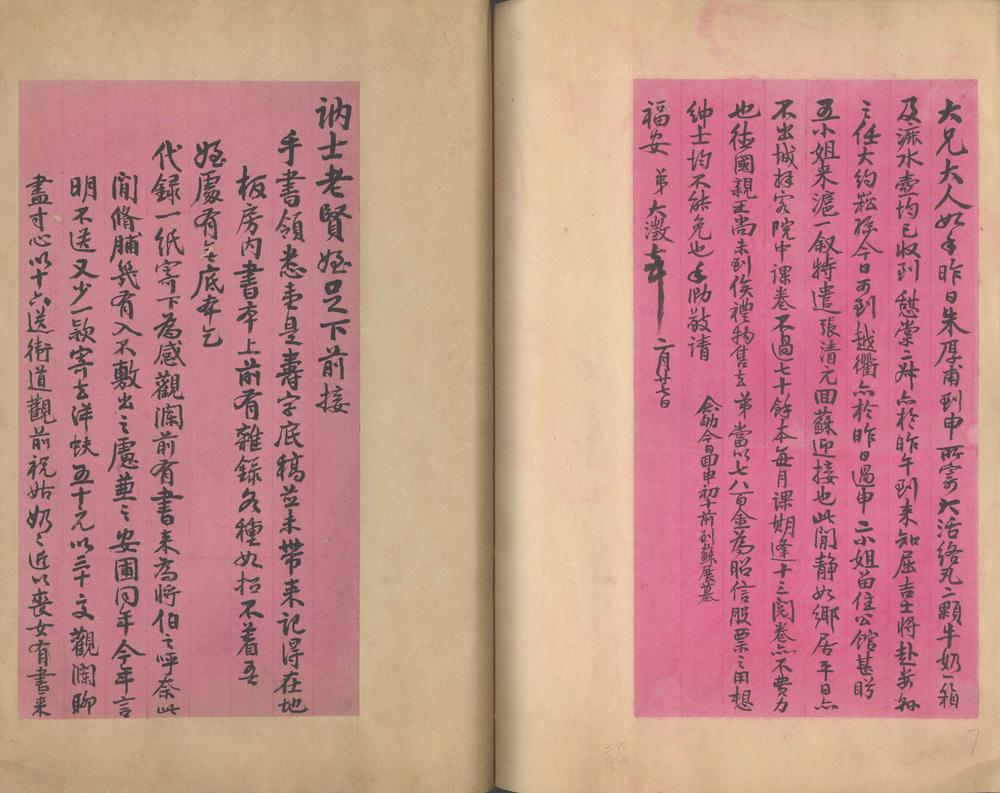 大兄大人如手昨日朱厚甫到申所寄大活络丸二顆牛奶一箱
及派水壺均已收到憇棠二姪亦於昨午到来知屈吉士將赴安
之任大約菘孫今日可到越衢亦於昨日過申二小姐留住公館甚盼
五小姐来滬一叙特遣張清元回蘇迎接也此間静如鄉居平日亦
不出城拜客院中課卷不過七十餘本每月課期逢十三閱卷亦不費力
也德國親王尚未到俟禮物售去弟當以七八百金為昭信股票之用想
紳士均不能免也手泐敬請
福安 弟大澂 二月廿七日
念劬今日回申初十前到蘇展墓
訥士老賢姪足下前接
手書領悉壹是壽字底稿並未帶来記得在地
板房内書本上前有雜錄各種如招不着吾
姪處有無底本乞
代録一紙寄下為感觀瀾前有書来為將伯之呼奈此
間脩脯幾有入不敷出之慮兼之安圃同年今年言
明不送又少一款寄去洋蚨五十元以三十交觀瀾聊
盡寸心以十六送街道觀前祝姑奶奶近以喪女有書来